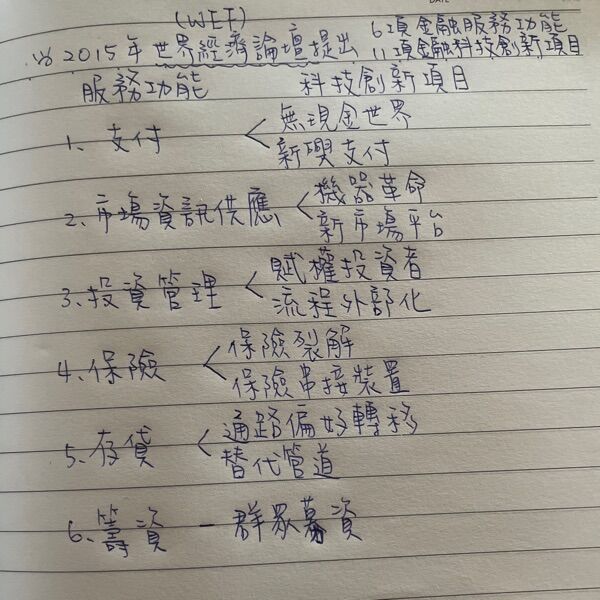 (WEF)
6項金融服務功能
(1) 2015年世界經濟論壇提出
11項金融科技創新項目
服務功能 科技創新項目
1、支付
無現金世界
新興支付
2、市場資訊供應
機器革命
新市場平台
3、投資管理
賦權投資者
流程外部化
4、保險
保險裂解
保險串接裝置
5、存貸
通路偏好轉移
替代管道
6、籌資 — 群眾募資
DATE